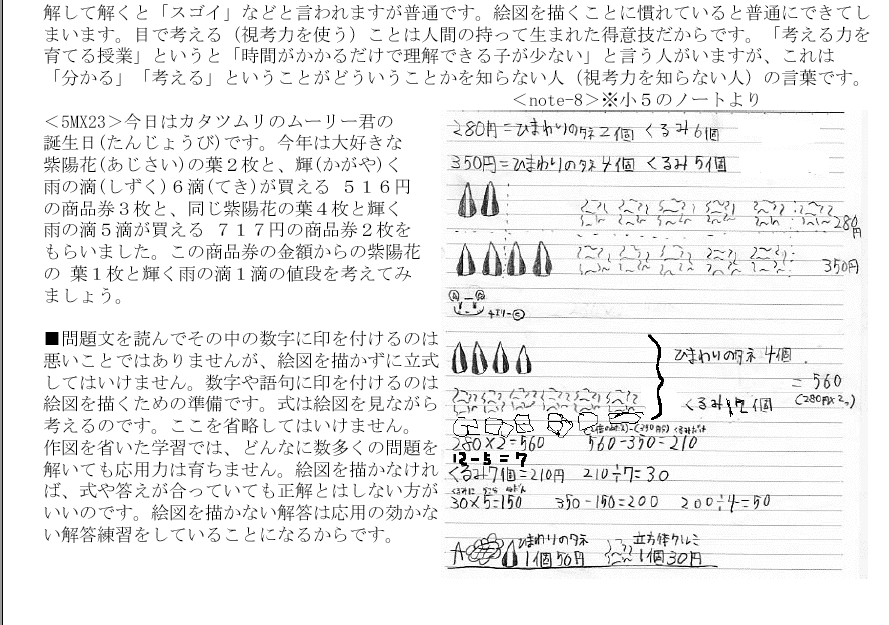 解して解くと「スゴイ」などと言われますが普通です。絵図を描くことに慣れていると普通にできてし
まいます。目で考える（視考力を使う）ことは人間の持って生まれた得意技だからです。「考える力を
育てる授業」というと「時間がかかるだけで理解できる子が少ない」と言う人がいますが、これは
「分かる」「考える」ということがどういうことかを知らない人（視考力を知らない人）の言葉です。
＜note-8＞※小５のノートより
＜5MX23＞今日はカタツムリのムーリー君の
誕生日(たんじょうび)です。今年は大好きな
紫陽花(あじさい)の葉２枚と、輝(かがや)く
雨の滴(しずく)６滴(てき)が買える ５１６円
の商品券３枚と、同じ紫陽花の葉４枚と輝く
雨の滴５滴が買える ７１７円の商品券２枚を
もらいました。この商品券の金額からの紫陽花
の 葉１枚と輝く雨の滴１滴の値段を考えてみ
ましょう。
■問題文を読んでその中の数字に印を付けるのは
悪いことではありませんが、絵図を描かずに立式
してはいけません。数字や語句に印を付けるのは
絵図を描くための準備です。式は絵図を見ながら
考えるのです。ここを省略してはいけません。
作図を省いた学習では、どんなに数多くの問題を
解いても応用力は育ちません。絵図を描かなけれ
ば、式や答えが合っていても正解とはしない方が
いいのです。絵図を描かない解答は応用の効かな
い解答練習をしていることになるからです。
280円=ひまわりのタネ2個 くるみ6個
350円=ひまわりのタネ4個 くるみ5個
280円
350円
ひまわりのタネ 4個
くるみ12個
= 560
(280円×2。)
280×2=560 560-350=210
12-5=7
くるみ7個=210円 210÷7=30
30×5=150 350-150=200 200÷4=50
A ひまわりのタネ 1個50円 立方体クルミ 1個30円